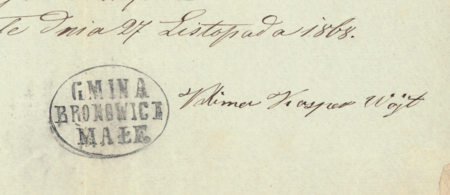 te dnia 27 Listopada 1868.
GMINA
BRONOWICE
MAŁE
Klima Kasper Wójt